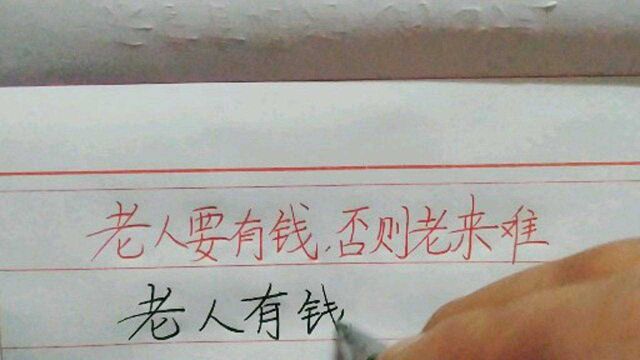 老人要有钱,否则老来难
老人有钱